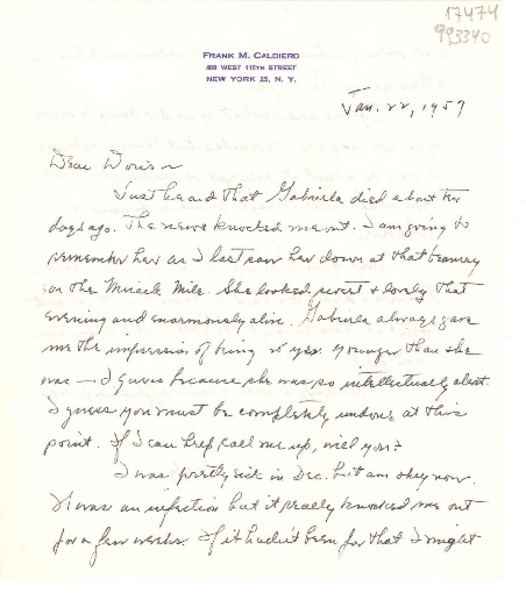 17474
993340
FRANK M. CALDIERO
408 WEST 115TH STREET
NEW YORK 25, N. Y.
Jan. 22, 1957
Dear Doris ~
Just heard that Gabriela died about ten
days ago. The news knocked me out. I am going to
remember her as I last saw her down at that beanery
on the Miracle Mile. She looked sweet & lovely that
evening and enormously alive. Gabriela always gave
me the impression of being 15 yrs. younger than she
was — I guess because she was so intellectually alert.
I guess you must be completely undone at this
point. If I can help call me up, will you?
I was pretty sick in Dec. but am okey now.
It was an infection but it really knocked me out
for a few weeks. If it hadn't been for that I might